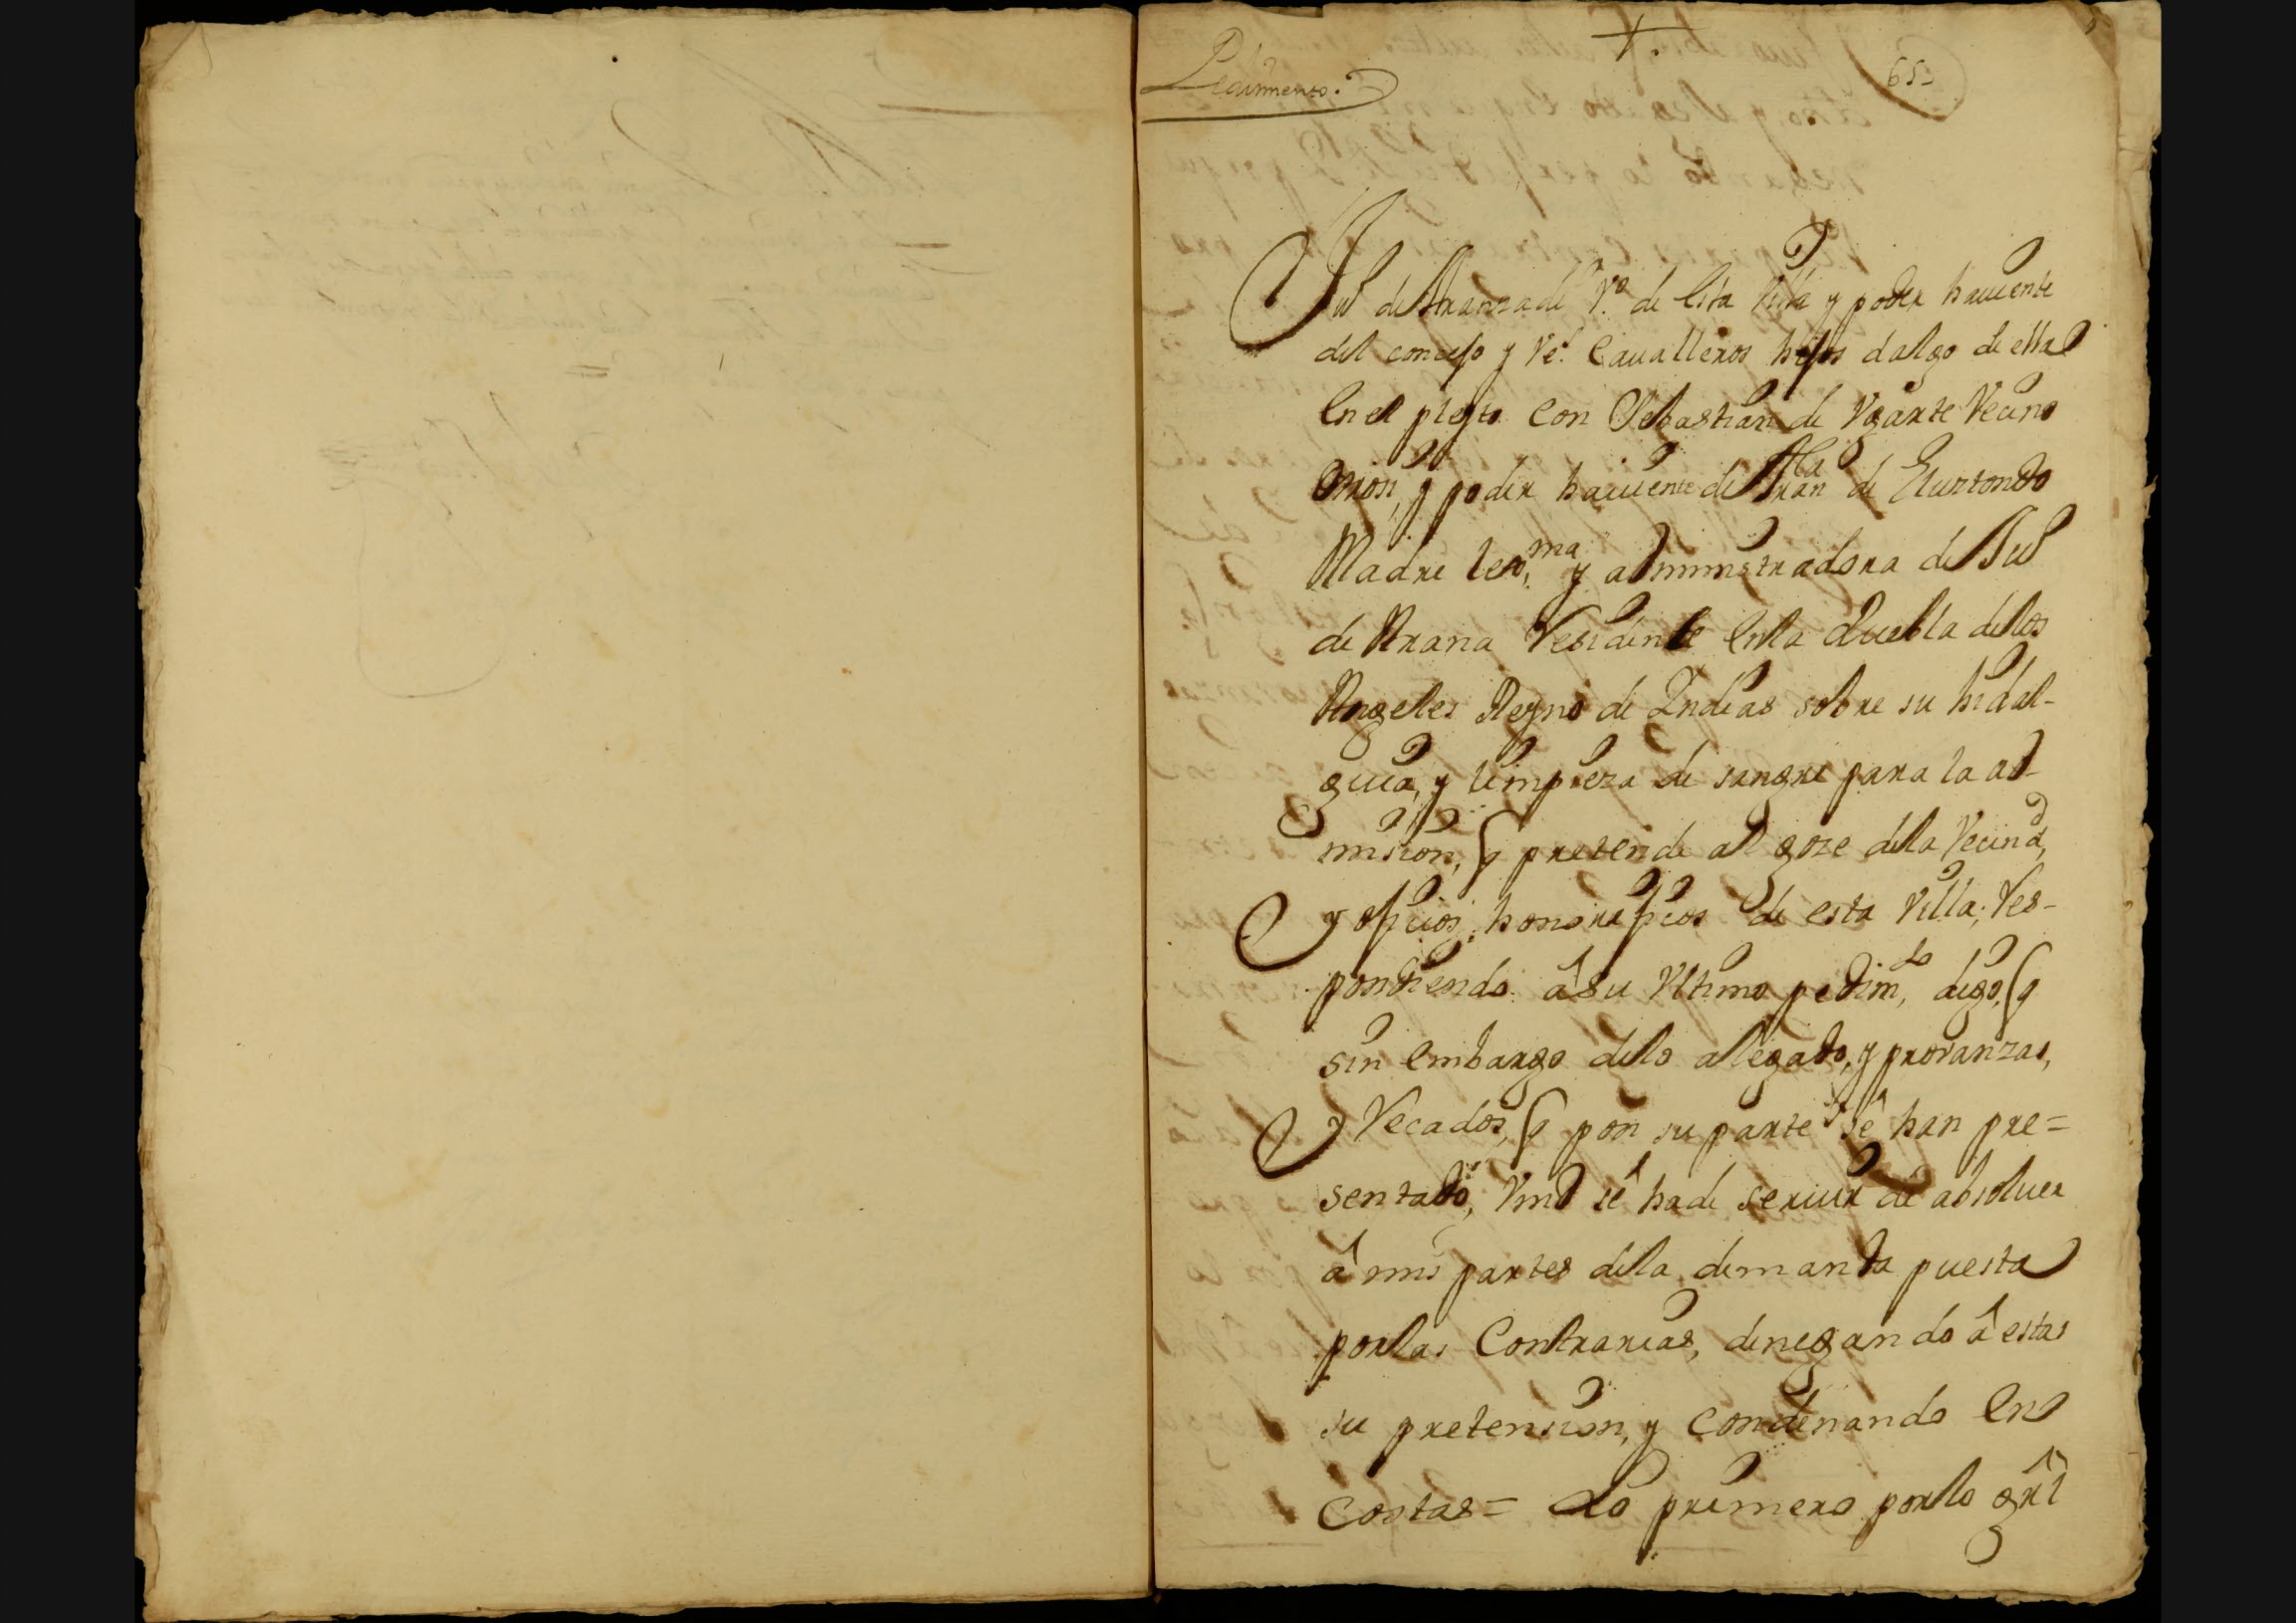 Pedimento.
65
Ju.º de Aranzadi V.º de esta Villa y poder hauiente
del concejo y Ve.s Caualleros hijos dalgo de ella
en el pleyto con Sebastian de Vgarte Vecino
y poder hauiente de de Elurtondo
Madre lex.ma y administradora de Ju.º
de Arana Residente en la Puebla de los
Angeles Reyno de Indias sobre su hidal-
guia, y limpieza de sangre para la ad-
mision, q pretende al goze de la Vecind.d,
y oficios honorificos de esta Villa; Res-
pondiendo â su Vltimo pedim.to, digo, q
sin embargo delo alegado, y provanzas,
y Recados, q por su parte sê han pre=
sentado, Vmd sê ha de seruir de absoluer
â mis partes dela demanda puesta
por las Contrarias, denegando â estas
su pretension, y condenando en
costas= Lo primero por lo grâl